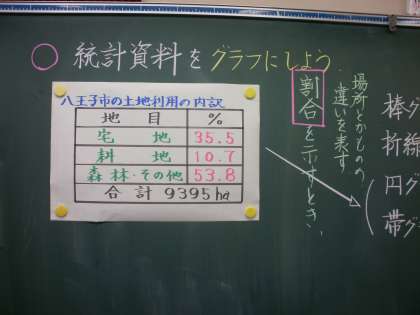 ○ 統計資料をグラフにしよう.
八王子市の土地利用の内訳
地目 %
宅地 35.5
耕地 10.7
森林・その他 53.8
合計 9395ha
場所とかものの、
違いを表す
割合を示すとき、
棒グ
折線
円グ
帯グ